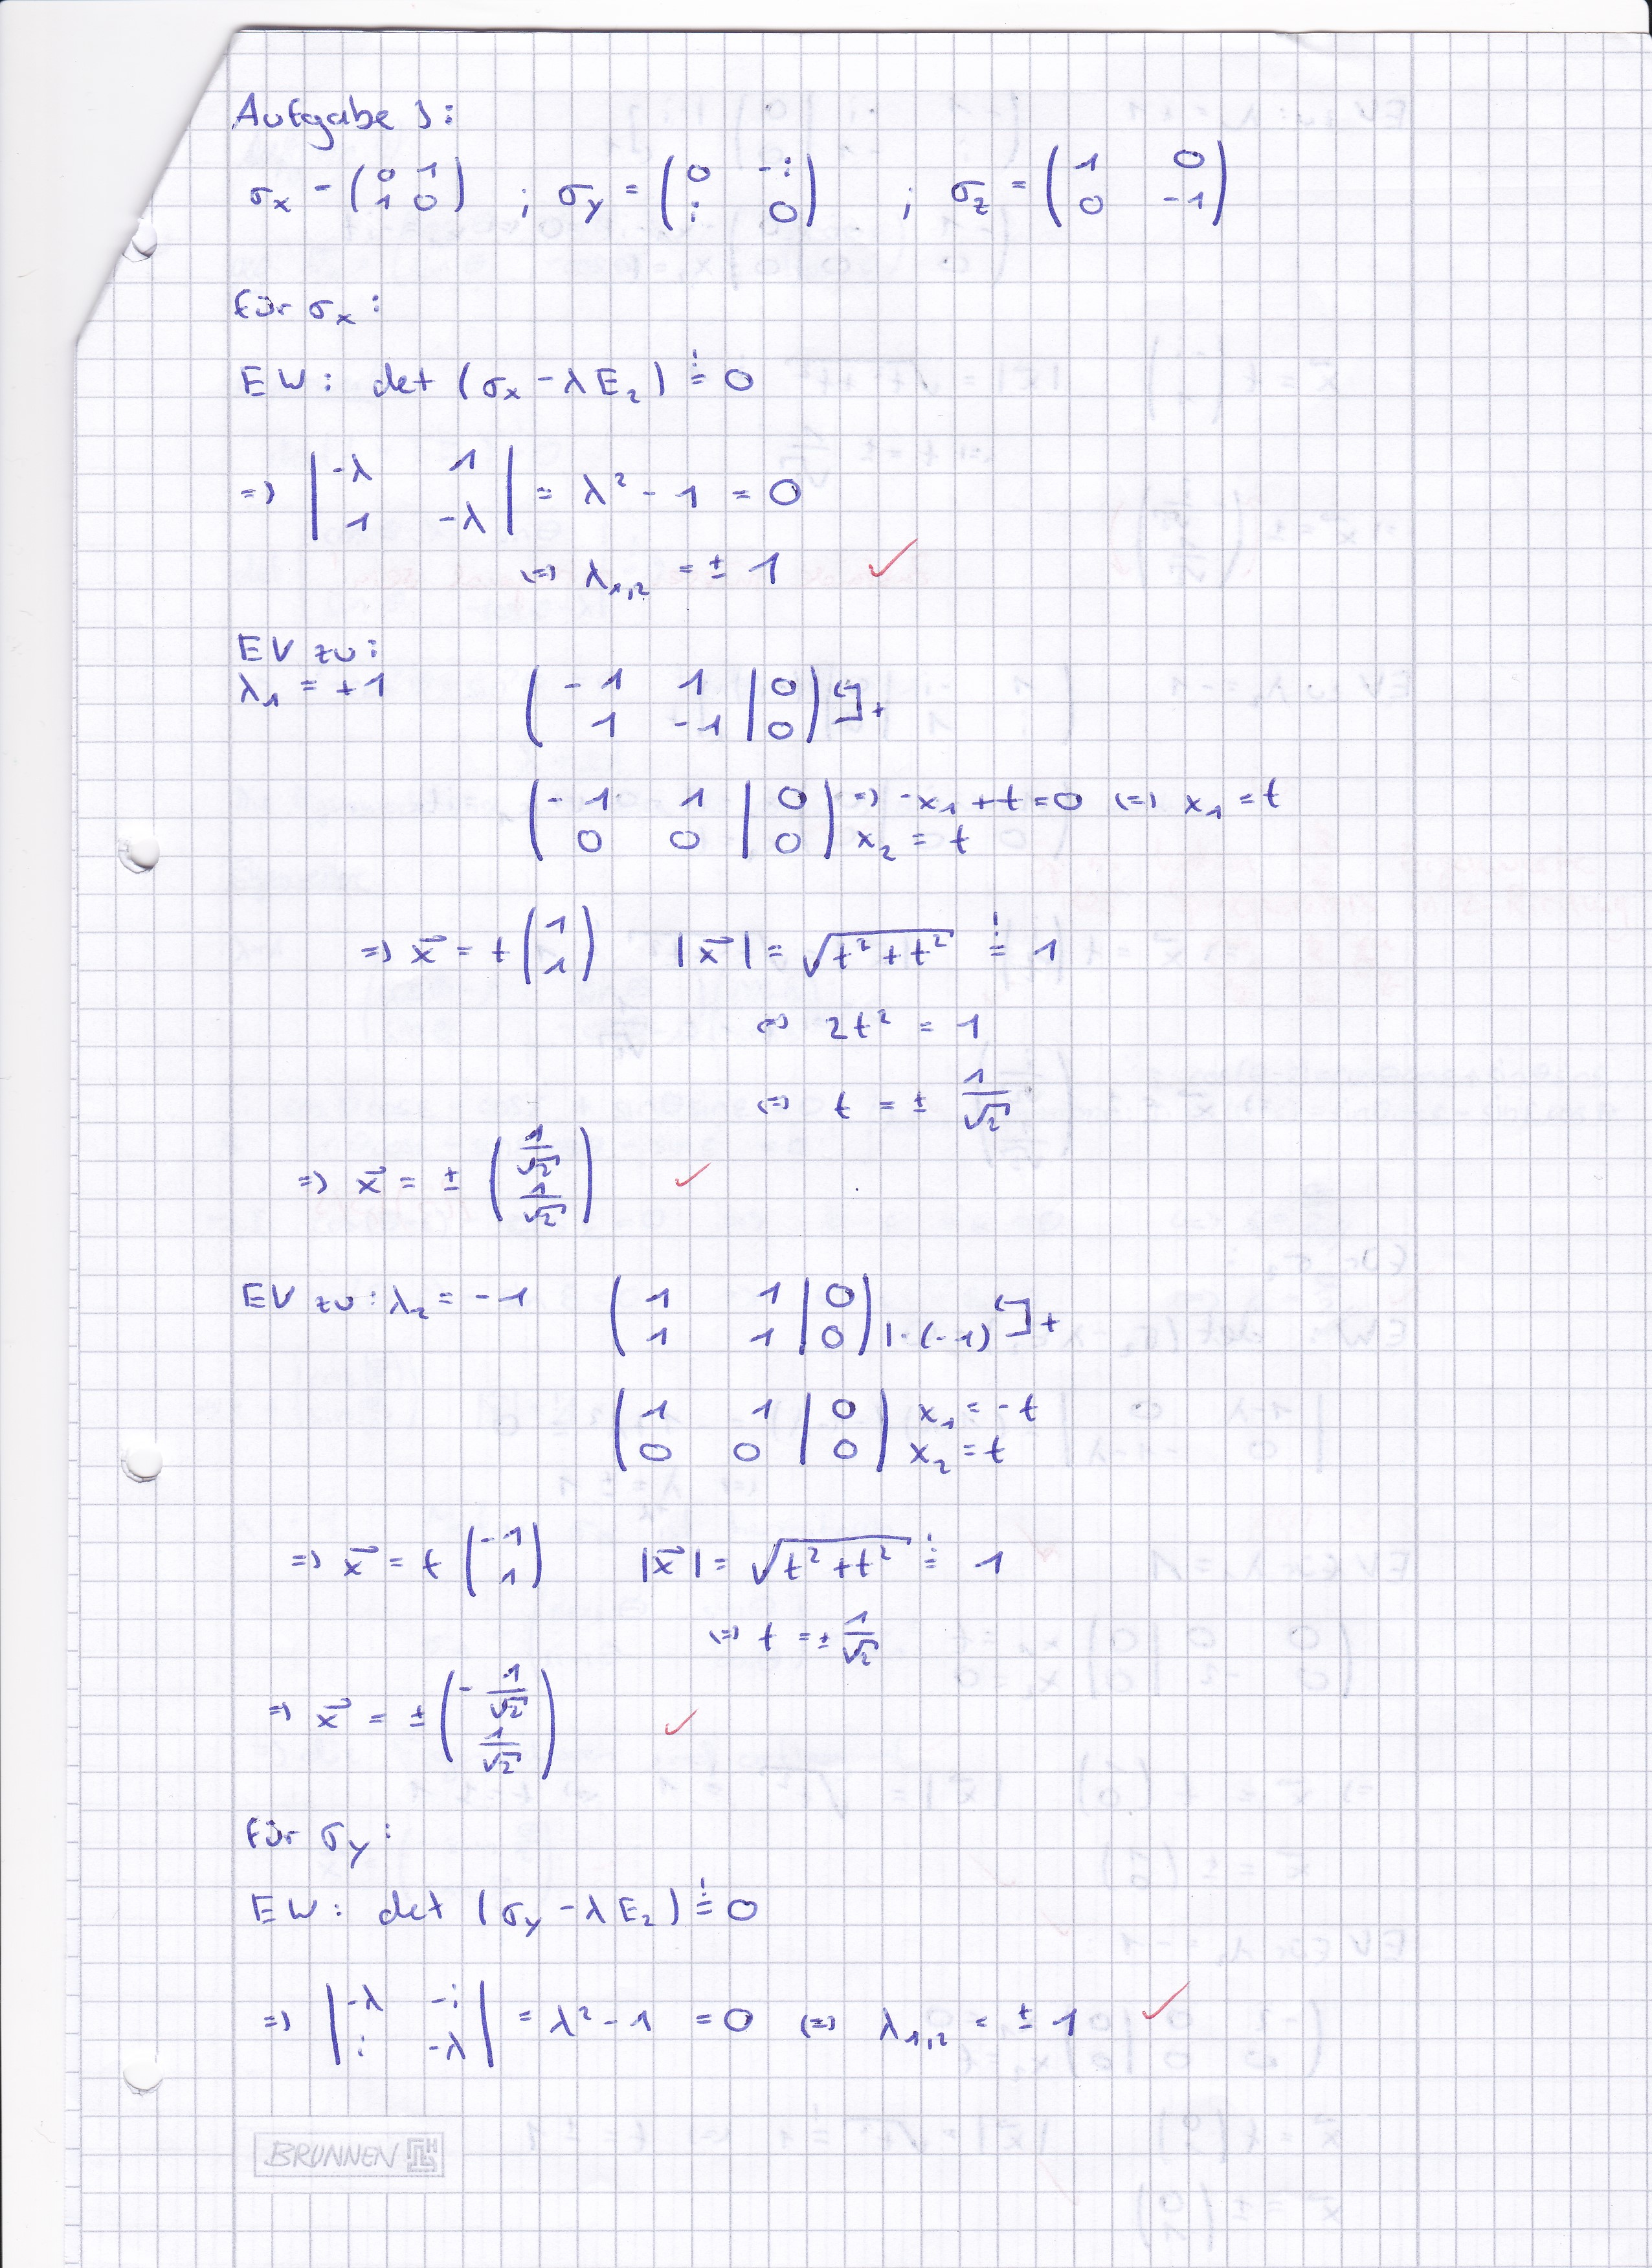 Aufgabe 1:
σₓ = (0 1; 1 0) ; σ_y = (0 -i; i 0) ; σ_z = (1 0; 0 -1)
Für σₓ:
EW: det (σₓ - λE₂) =! 0
=> |-λ 1; 1 -λ| = λ² - 1 = 0
<=> λ₁,₂ = ± 1 ✓
EV zu:
λ₁ = +1 (-1 1 | 0; 1 -1 | 0) +
(-1 1 | 0; 0 0 | 0) => -x₁ + t = 0 <=> x₁ = t
x₂ = t
=> x⃗ = t (1; 1) |x⃗| = √(t² + t²) =! 1
<=> 2t² = 1
<=> t = ± 1/√2
=> x⃗ = ± (1/√2; 1/√2) ✓
EV zu: λ₂ = -1 (1 1 | 0; 1 1 | 0) |·(-1) +
(1 1 | 0; 0 0 | 0) x₁ = -t
x₂ = t
=> x⃗ = t (-1; 1) |x⃗| = √(t² + t²) =! 1
<=> t = ± 1/√2
=> x⃗ = ± (-1/√2; 1/√2) ✓
Für σ_y:
EW: det (σ_y - λE₂) =! 0
=> |-λ -i; i -λ| = λ² - 1 = 0 <=> λ₁,₂ = ± 1 ✓
BRUNNEN